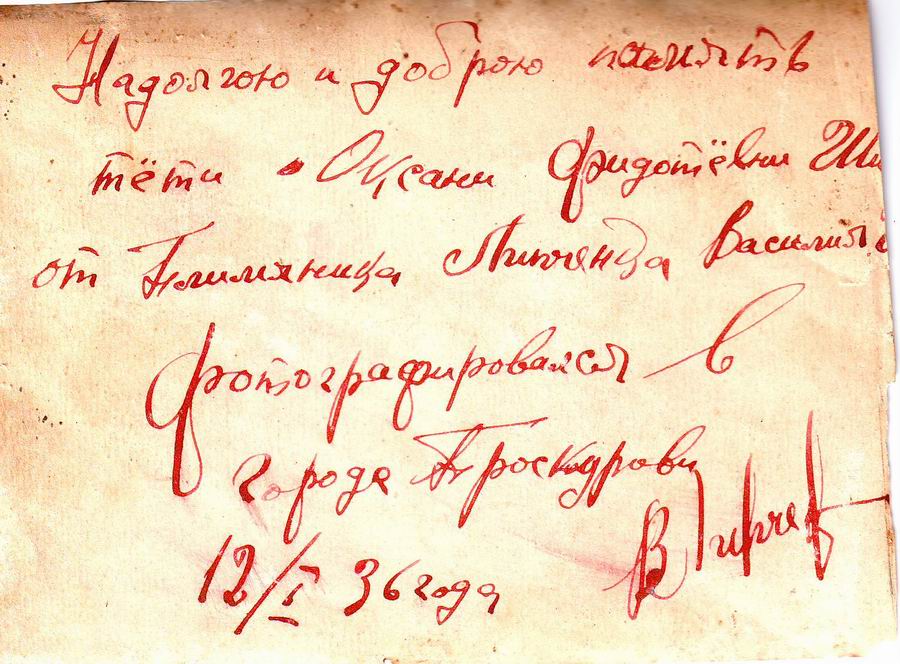 Надолгою и доброю память
тёти Оксани Фридотёвни Ши
от Племяница Линченца Василия
фотографировался в
городе Проскурови
12/I 36 года